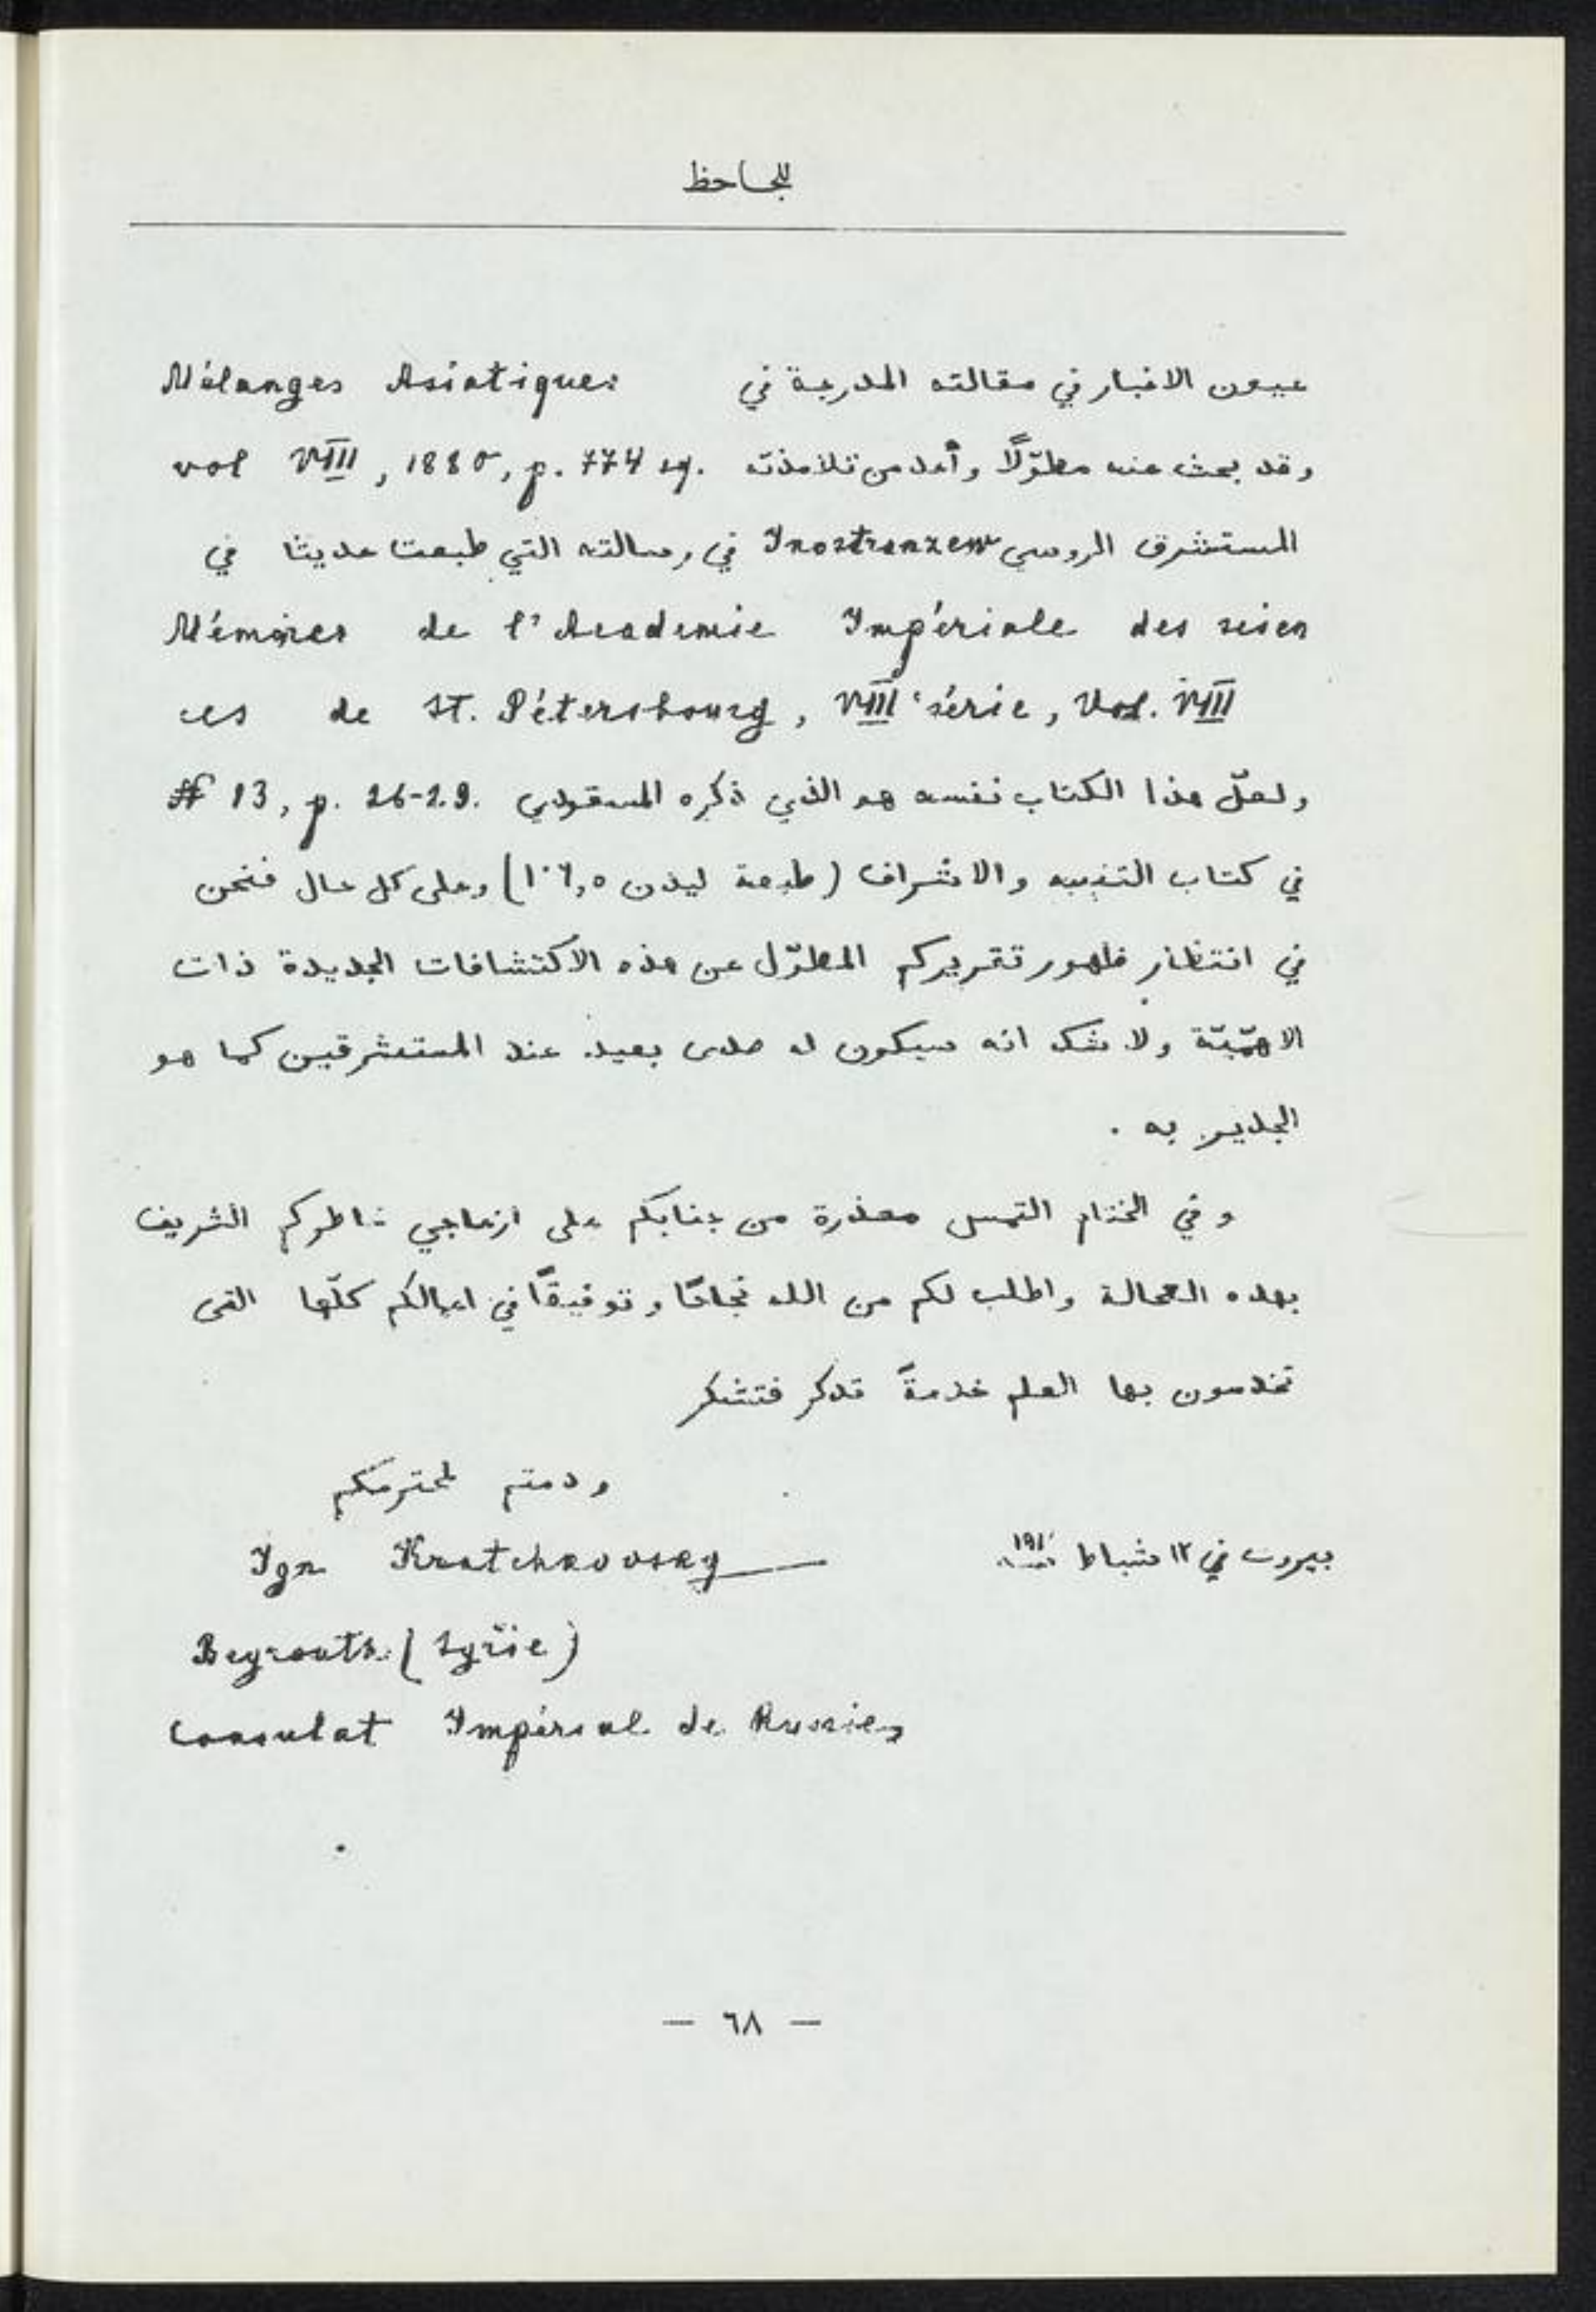 للجاحظ
عيون الاخبار في مقالته المدرجة في Mélanges Asiatiques
vol VIII, 1880, p. 774 sq. وقد بحث عنه مطوّلًا وأحد من تلامذته
المستشرق الروسي Inostranzew في رسالته التي طبعت حديثا في
Mémoires de l'Academie Impériale des scien
ces de St. Pétersbourg, VIII série, Vol. VIII
# 13, p. 26-29. ولعلّ هذا الكتاب نفسه هو الذي ذكره المسعودي
في كتاب التنبيه والاشراف (طبعة ليدن ١٠٦،٥) وعلى كل حال فنحن
في انتظار ظهور تقريركم المطوّل عن هذه الاكتشافات الجديدة ذات
الاهمّيّة ولا شك انه سيكون له صدى بعيد عند المستشرقين كما هو
الجدير به .
وفي الختام التمس معذرة من جنابكم على ازعاجي خاطركم الشريف
بهذه العجالة واطلب لكم من الله نجاحًا وتوفيقًا في اعمالكم كلّها التى
تخدمون بها العلم خدمةً تذكر فتشكر
ودمتم لمحترمكم
بيروت في ١٢ شباط ١٩١٠ Ign Kratchkovsky
Beyrouth (Syrie)
Consulat Impérial de Russie
— ٦٨ —